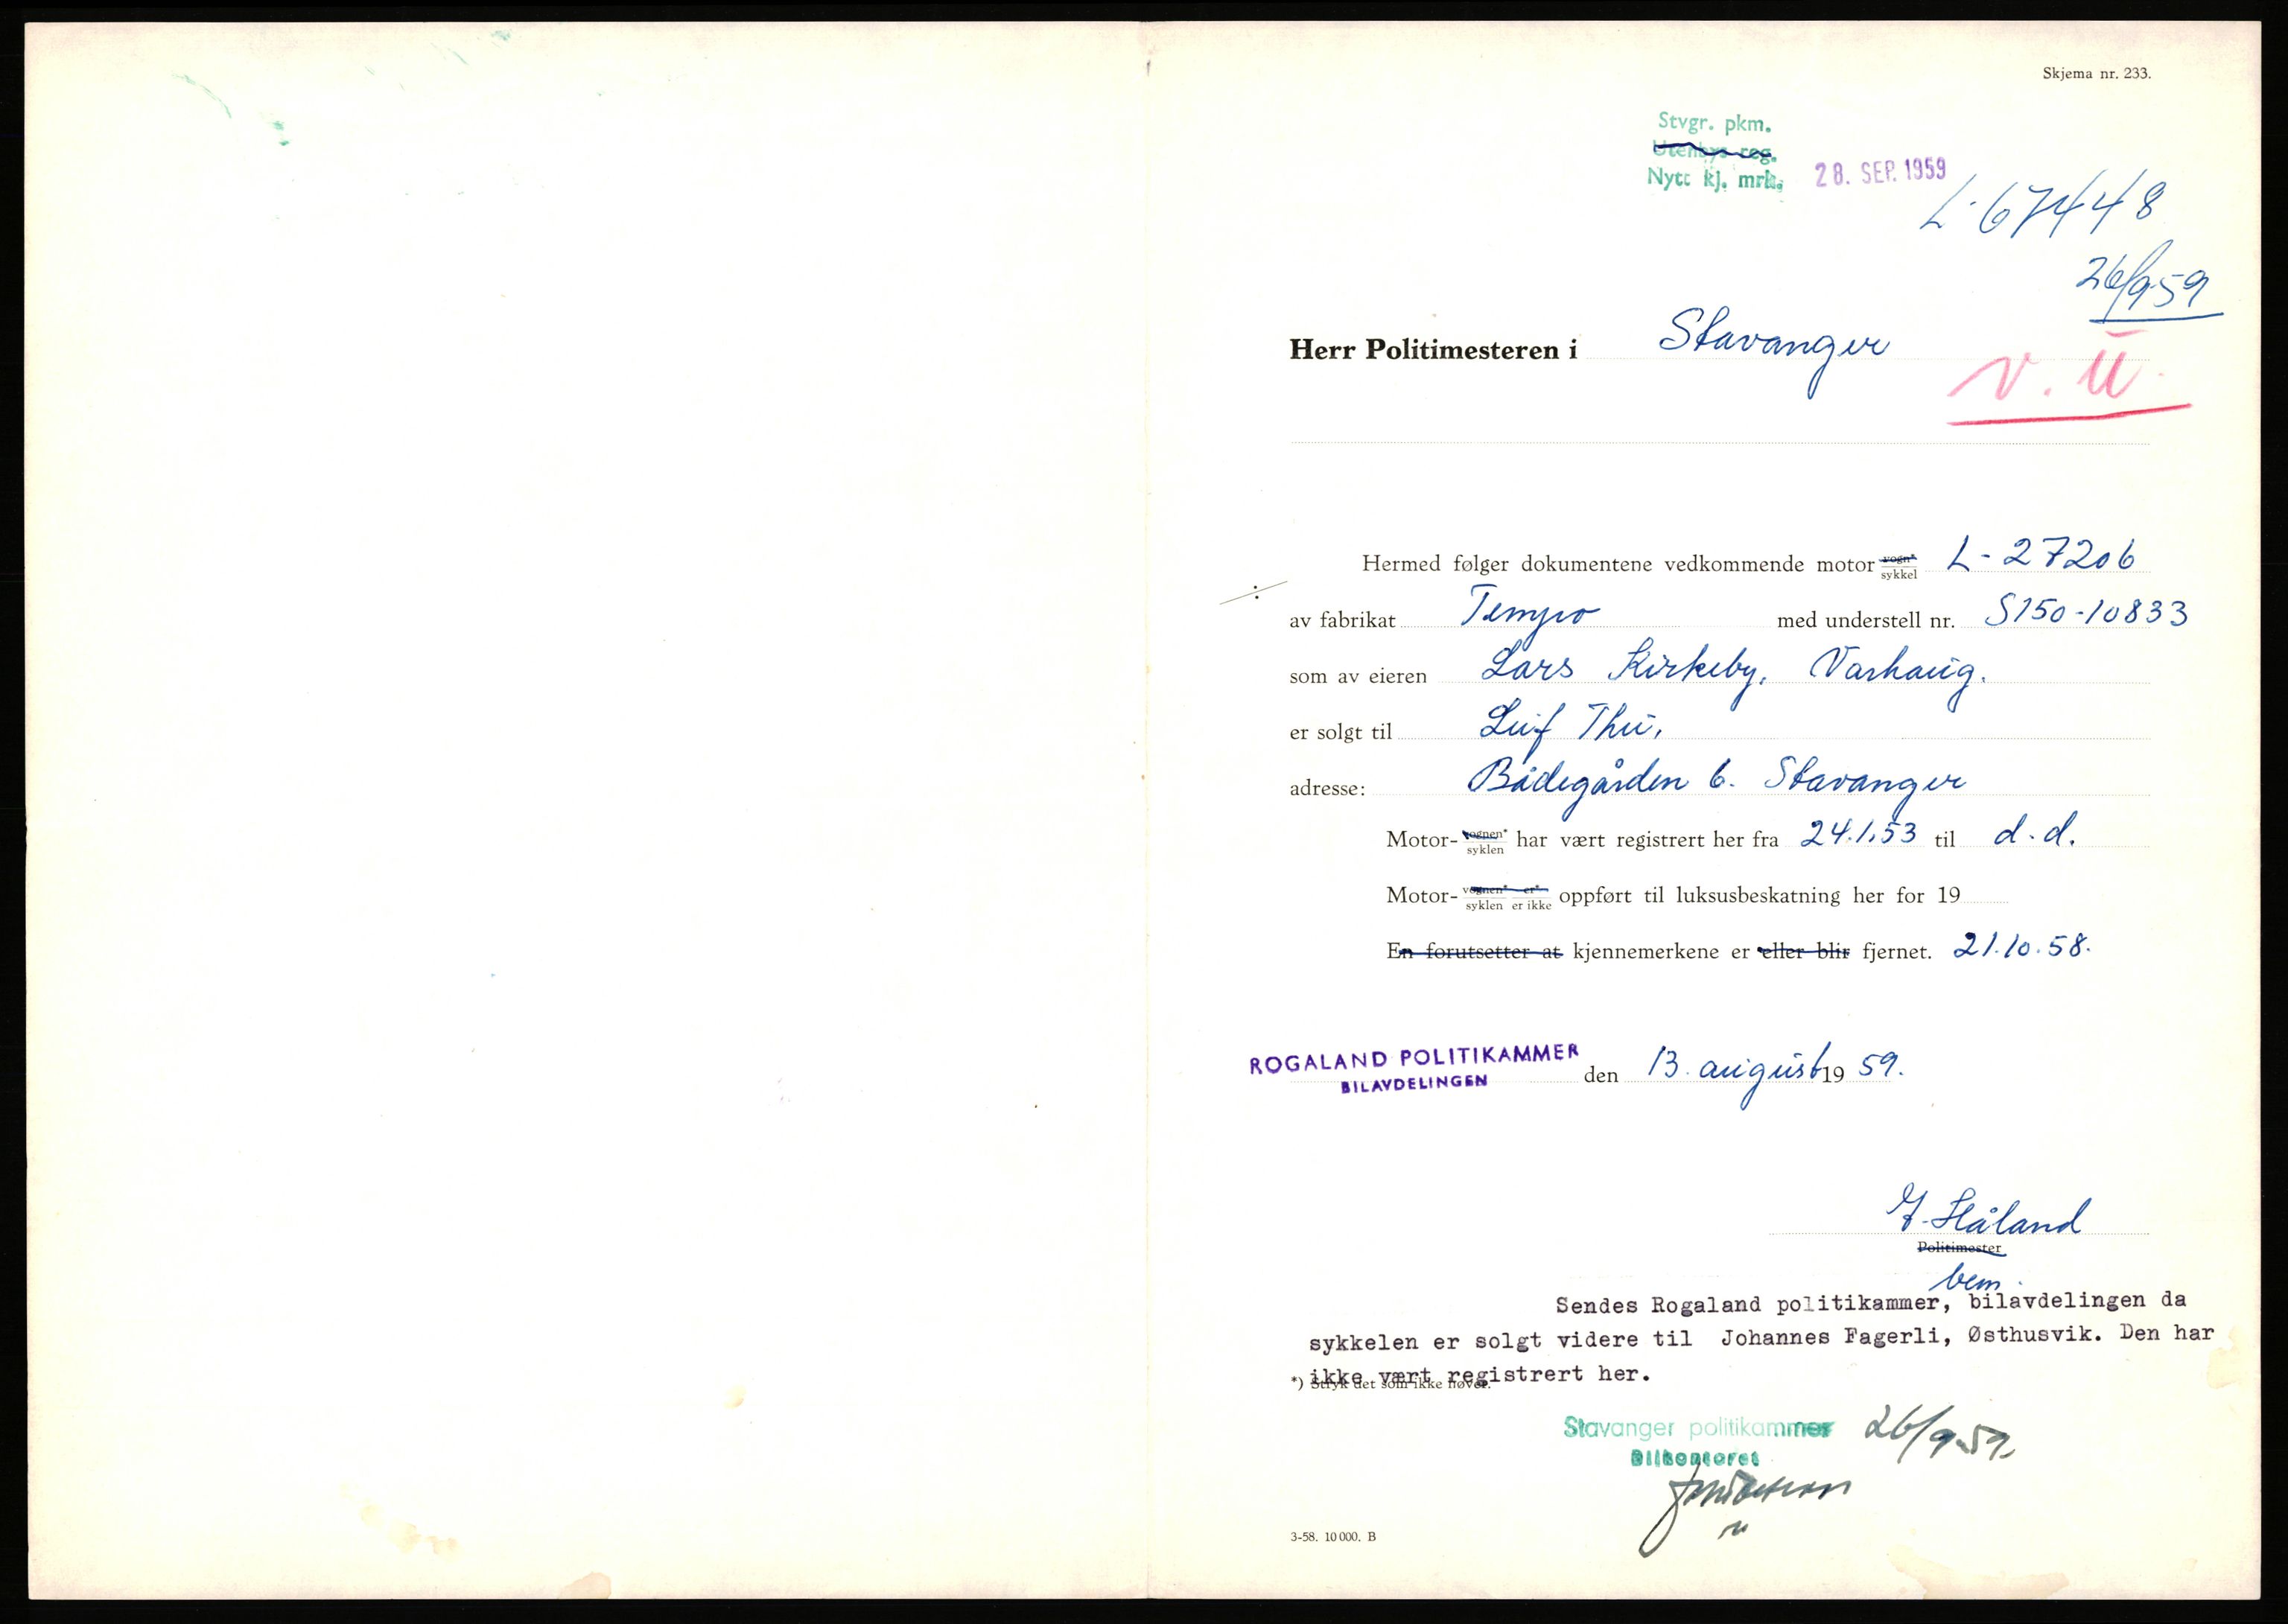 Skjema nr. 233.
Stvgr. pkm.
Utenbys reg.
Nytt kj. mrk. 28. SEP. 1959
L-67448
26/9-59
Herr Politimesteren i Stavanger
V. U.
Hermed følger dokumentene vedkommende motor vogn* sykkel L-27206
av fabrikat Tempo med understell nr. S150-10833
som av eieren Lars Kirkeby, Varhaug.
er solgt til Leif Thu,
adresse: Bådegården 6. Stavanger
Motor- vognen* syklen har vært registrert her fra 24.1.53 til d.d.
Motor- vognen* er* syklen er ikke oppført til luksusbeskatning her for 19
En forutsetter at kjennemerkene er eller blir fjernet. 21.10.58.
ROGALAND POLITIKAMMER
BILAVDELINGEN den 13. august 19 59.
Håland
Politimester
bem.
Sendes Rogaland politikammer, bilavdelingen da
sykkelen er solgt videre til Johannes Fagerli, Østhusvik. Den har
ikke vært registrert her.
*) Stryk det som ikke høver.
Stavanger politikammer 26/9-59.
Bilkontoret
3-58. 10 000. B